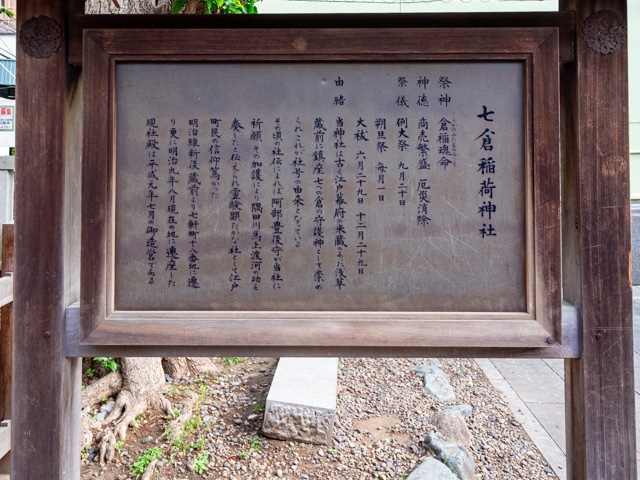 七倉稲荷神社
祭神 倉稲魂命
神徳 商売繁盛 厄災消除
祭儀 例大祭 九月二十日
朔旦祭 毎月一日
大祓 六月二十九日 十二月二十九日
由緒 当神社は古く江戸幕府の米蔵のあった浅草
蔵前に鎮座七つの倉の守護神として崇め
られこれが社号の由来となっている
その頃の社伝によれば阿部豊後守が当社に
祈願その加護により隅田川馬上渡河の功を
奏したと伝えられ霊験顕たかな社として江戸
町民の信仰篤かった
明治維新後蔵前より七軒町十八番地に遷
り更に明治九年八月現在の地に遷座した
現社殿は平成元年七月の御造営である